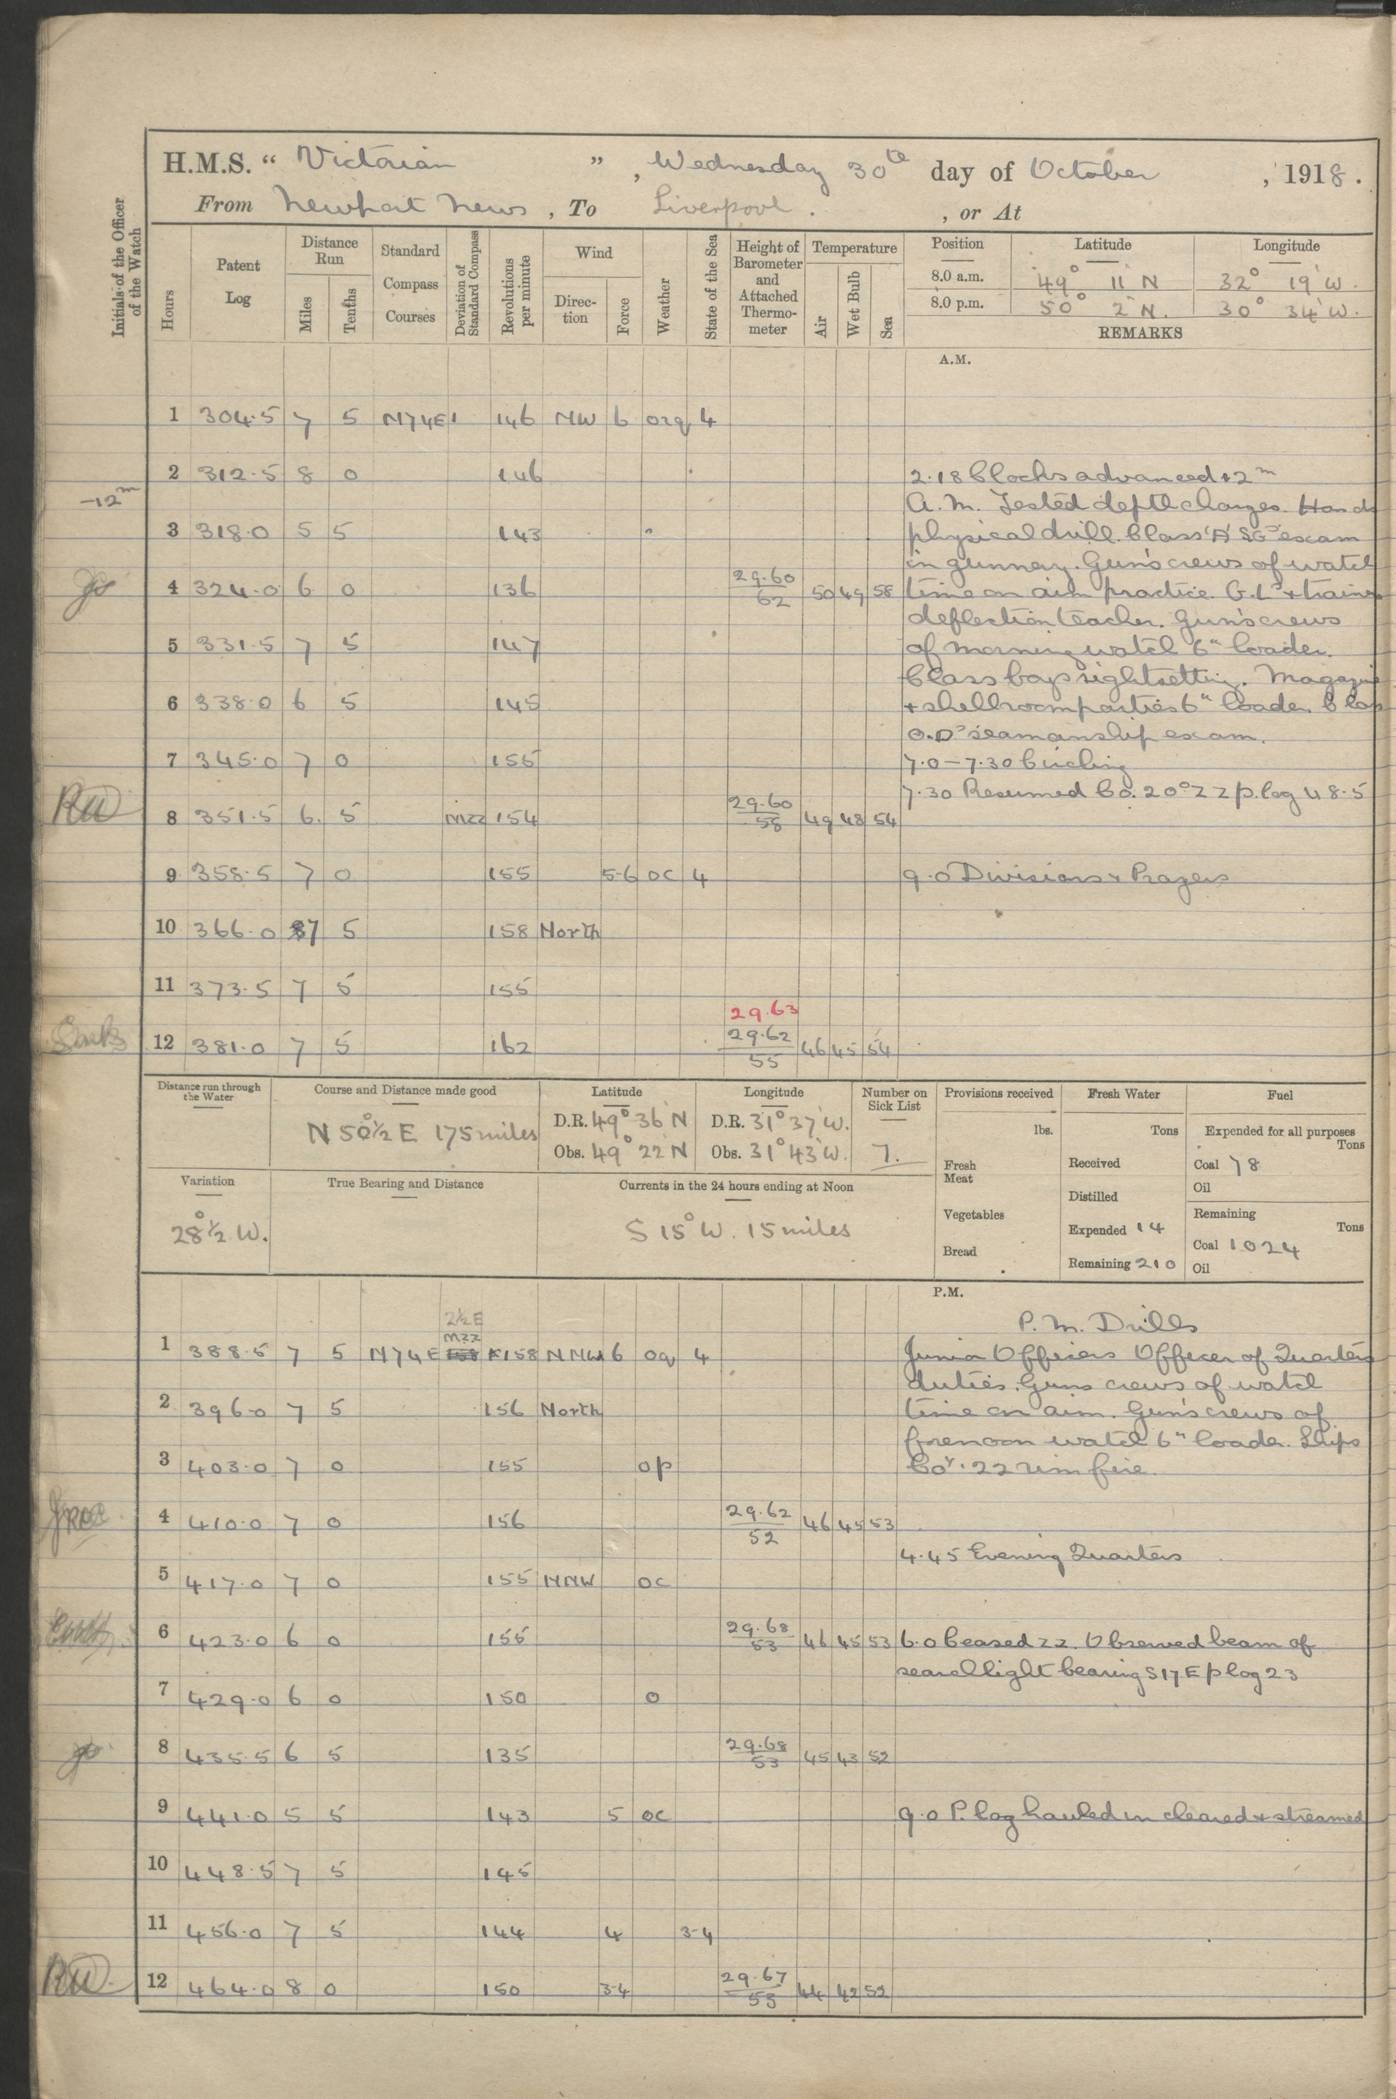 H.M.S. “ Victorian ” , Wednesday 30th day of October , 1918 .
From Newport News , To Liverpool . , or At
Initials of the Officer of the Watch
Hours Patent Log Distance Run Miles Tenths Standard Compass Courses Deviation of Standard Compass Revolutions per minute Wind Direc- tion Force Weather State of the Sea Height of Barometer and Attached Thermo- meter Temperature Air Wet Bulb Sea Position Latitude Longitude
8.0 a.m. 49° 11' N 32° 19' W.
8.0 p.m. 50° 2' N. 30° 34' W.
REMARKS
A.M.
1 304.5 7 5 N74E 146 NW 6 org 4
2 312.5 8 0 146 2.18 Clocks advanced 12m
-12m A.M. Tested depth charges. Hands
3 318.0 5 5 143 " physical drill. Class 'A' SGs exam
in gunnery. Gun's crews of watch
4 324.0 6 0 136 29.60/62 50 49 58 time on aim practice. G.Ls + trainers
deflection teacher. Gun's crews
5 331.5 7 5 147 of morning watch 6" loader.
Class boys sightsetting. Magazine
6 338.0 6 5 145 + shellroom parties 6" loader. Class
O.Ds seamanship exam.
7 345.0 7 0 155 7.0 - 7.30 Circling
7.30 Resumed Co. 20° ZZ p.log 48.5
8 351.5 6. 5 MZZ 154 29.60/58 49 48 54
9 358.5 7 0 155 5-6 oc 4 9.0 Divisions & Prayers
10 366.0 7 5 158 North
11 373.5 7 5 155
29.63
12 381.0 7 5 162 29.62/55 46 45 54
Distance run through the Water Course and Distance made good Latitude Longitude Number on Sick List Provisions received Fresh Water Fuel
N 50½° E 175 miles D.R. 49° 36' N D.R. 31° 37' W. lbs. Tons Expended for all purposes Tons
Obs. 49° 22' N Obs. 31° 43' W. 7. Fresh Meat Received Coal 78
Oil
Variation True Bearing and Distance Currents in the 24 hours ending at Noon Vegetables Distilled Remaining Tons
28½° W. S 15° W. 15 miles Bread Expended 14 Coal 1024
Remaining 210 Oil
P.M.
2½E P.M. Drills
1 388.5 7 5 N74E MZZ 158 NNW 6 oq 4 Junior Officers Officer of Quarters
duties. Guns crews of watch
2 396.0 7 5 156 North time on aim. Gun's crews of
forenoon watch 6" loader. Ships
3 403.0 7 0 155 op Coy. .22 rim fire.
4 410.0 7 0 156 29.62/52 46 45 53
4.45 Evening Quarters
5 417.0 7 0 155 NNW oc
6 423.0 6 0 155 29.68/53 46 45 53 6.0 Ceased ZZ. Observed beam of
searchlight bearing S17E p log 23
7 429.0 6 0 150 o
8 435.5 6 5 135 29.68/53 45 43 52
9 441.0 5 5 143 5 oc 9.0 P. log hauled in cleared & streamed
10 448.5 7 5 145
11 456.0 7 5 144 4 3-4
12 464.0 8 0 150 3-4 29.67/53 44 42 52